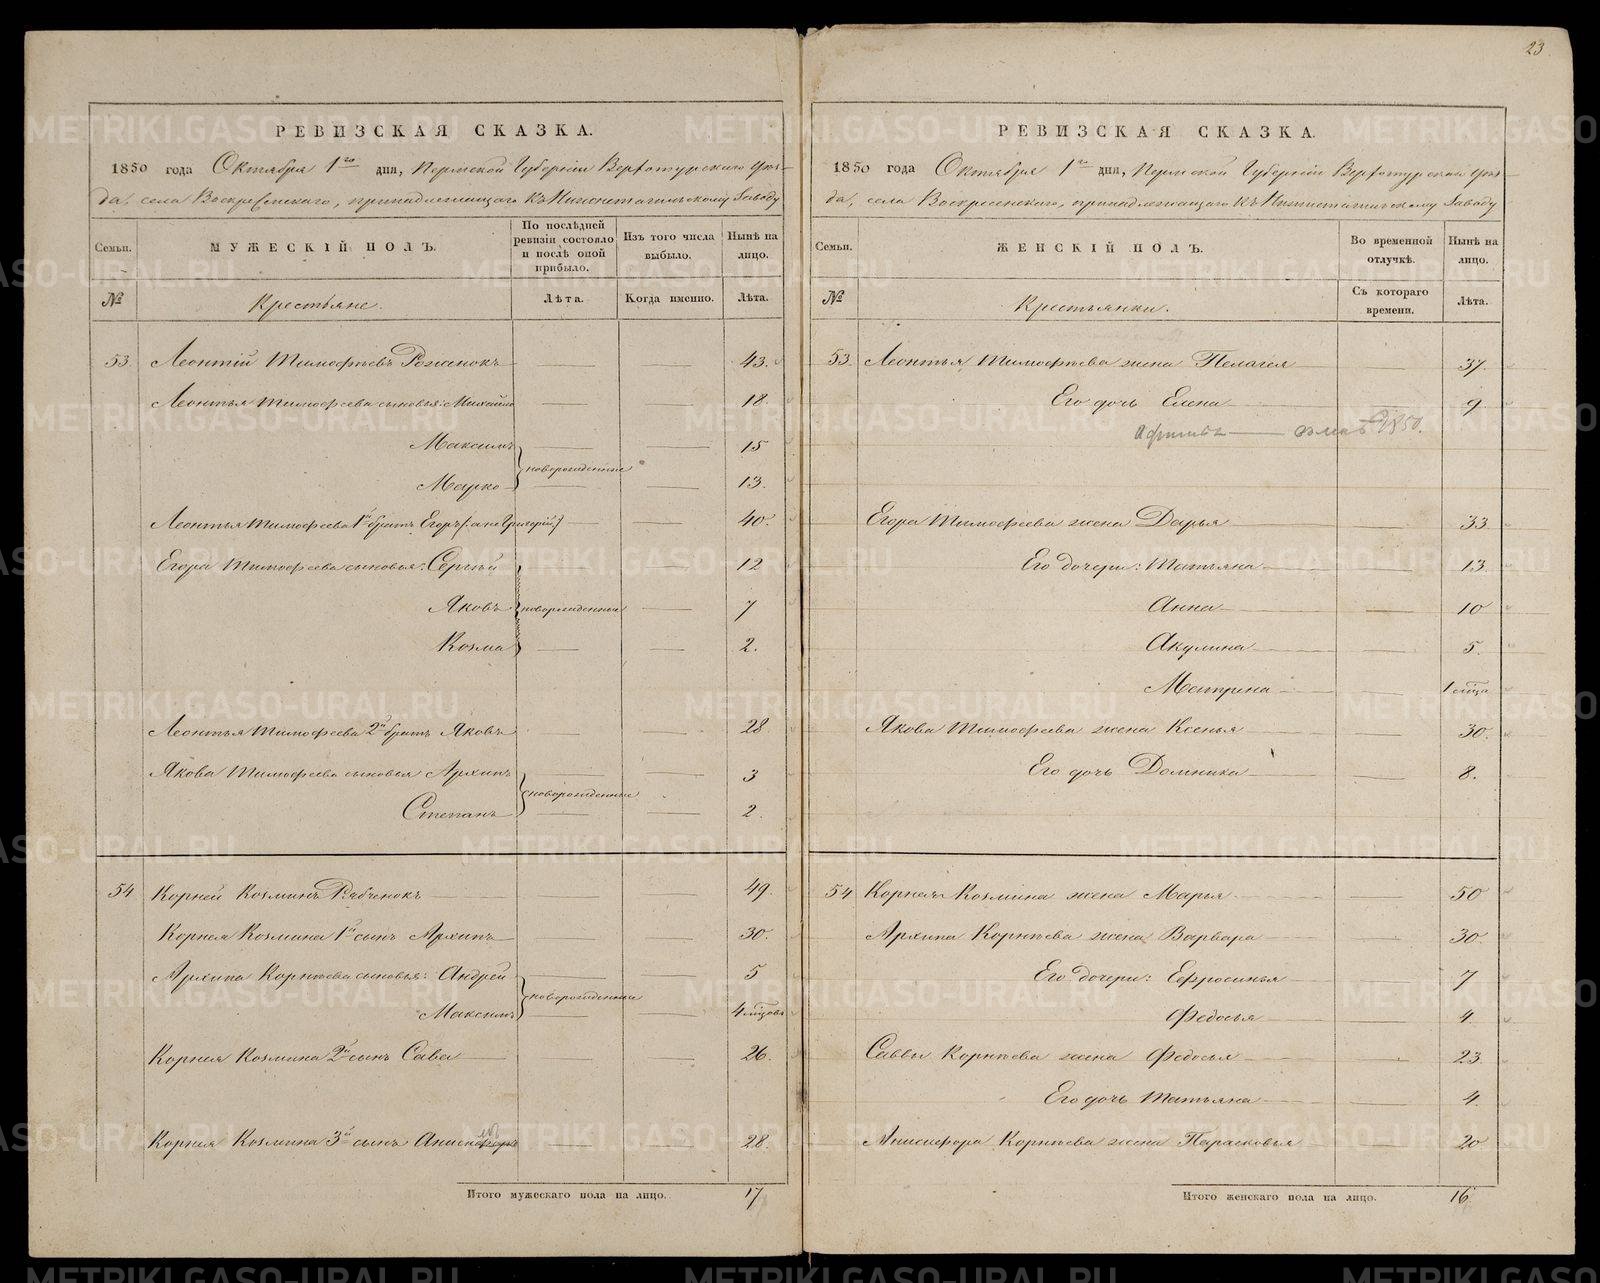 23
РЕВИЗСКАЯ СКАЗКА.
1850 года Октября 1го дня, Пермской Губернiи Верхотурскаго уѣз-
да, села Воскресенскаго, принадлежащаго къ Нижнетагильскому Заводу
Семьи. МУЖЕСКIЙ ПОЛЪ. По послѣдней ревизiи состояло и послѣ оной прибыло. Изъ того числа выбыло. Нынѣ на лицо.
№ Крестьяне. Лѣта. Когда именно. Лѣта.
53 Леонтiй Тимофѣевъ Роженокъ 43.
Леонтья Тимофеева сыновья: Михайло 18.
Максимъ 15
новорожденные
Марко 13.
Леонтья Тимофеева 1й братъ Егоръ (: а не Григорiй:) 40.
Егора Тимофеева сыновья: Сергѣй 12
Яковъ новорожденные 7
Козма 2.
Леонтья Тимофеева 2й братъ Яковъ 28
Якова Тимофеева сыновья Архипъ 3
новорожденные
Степанъ 2.
54 Корней Козминъ Рябченокъ 49.
Корнея Козмина 1й сынъ Архипъ 30.
Архипа Корнѣева сыновья: Андрей 5
новорожденные
Максимъ 4 мѣсцовъ
Корнея Козмина 2й сынъ Сава 26.
Корнея Козмина 3й сынъ Анисифоръ 28.
Итого мужескаго пола на лицо. 17
РЕВИЗСКАЯ СКАЗКА.
1850 года Октября 1го дня, Пермской Губернiи Верхотурскаго уѣз-
да, села Воскресенскаго, принадлежащаго къ Нижнетагильскому Заводу
Семьи. ЖЕНСКIЙ ПОЛЪ. Во временной отлучкѣ. Нынѣ на лицо.
№ Крестьянки. Съ котораго времени. Лѣта.
53 Леонтья Тимофѣева жена Пелагея 37.
Его дочь Елена 9
1850.
Егора Тимофеева жена Дарья 33
Его дочери: Татьяна 13.
Анна 10
Акулина 5.
Матрена 1 мѣсца
Якова Тимофеева жена Ксенья 30.
Его дочь Домника 8.
54 Корнея Козмина жена Марья 50
Архипа Корнѣева жена Варвара 30.
Его дочери: Ефросинья 7
Федосья 4.
Саввы Корнѣева жена Федосья 23.
Его дочь Татьяна 4.
Анисифора Корнѣева жена Парасковья 20
Итого женскаго пола на лицо. 16.
METRIKI.GASO-URAL.RU